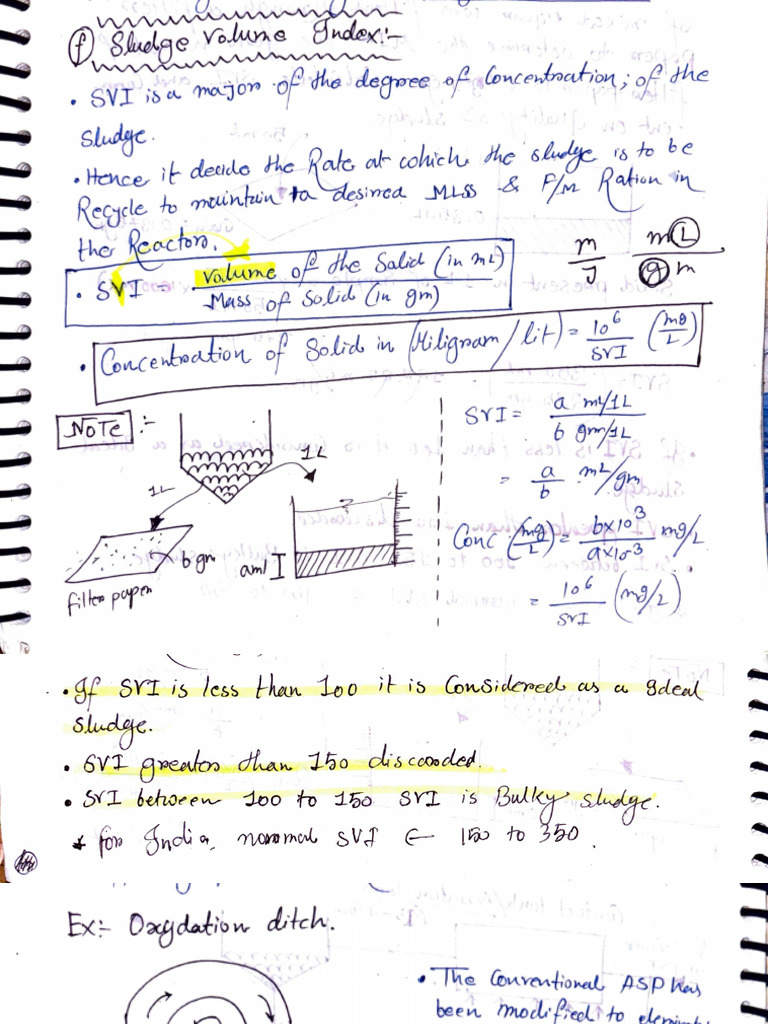 (f) Sludge Volume Index:-
• SVI is a major of the degree of Concentration; of the
Sludge.
• Hence it decide the Rate at which the sludge is to be
Recycle to maintain a desired MLSS & F/M Ration in
the Reactors.
• SVI = Volume of the Solid (in mL) / Mass of Solid (in gm)
m/J mL/gm
• Concentration of Solid in (Miligram/lit) = 10^6/SVI (mg/L)
NOTE :-
1L
1L
b gm
filter paper
a ml
SVI = a mL/1L / b gm/1L
= a/b mL/gm
Conc (mg/L) = b×10^3 / a×10^-3 mg/L
= 10^6/SVI (mg/L)
• If SVI is less than 100 it is Considered as a Ideal
Sludge.
• SVI greater than 150 discarded.
• SVI between 100 to 150 SVI is Bulky sludge.
* for India, normal SVI ← 150 to 350.
Ex:- Oxydation ditch.
• The Conventional ASP has
been modified to